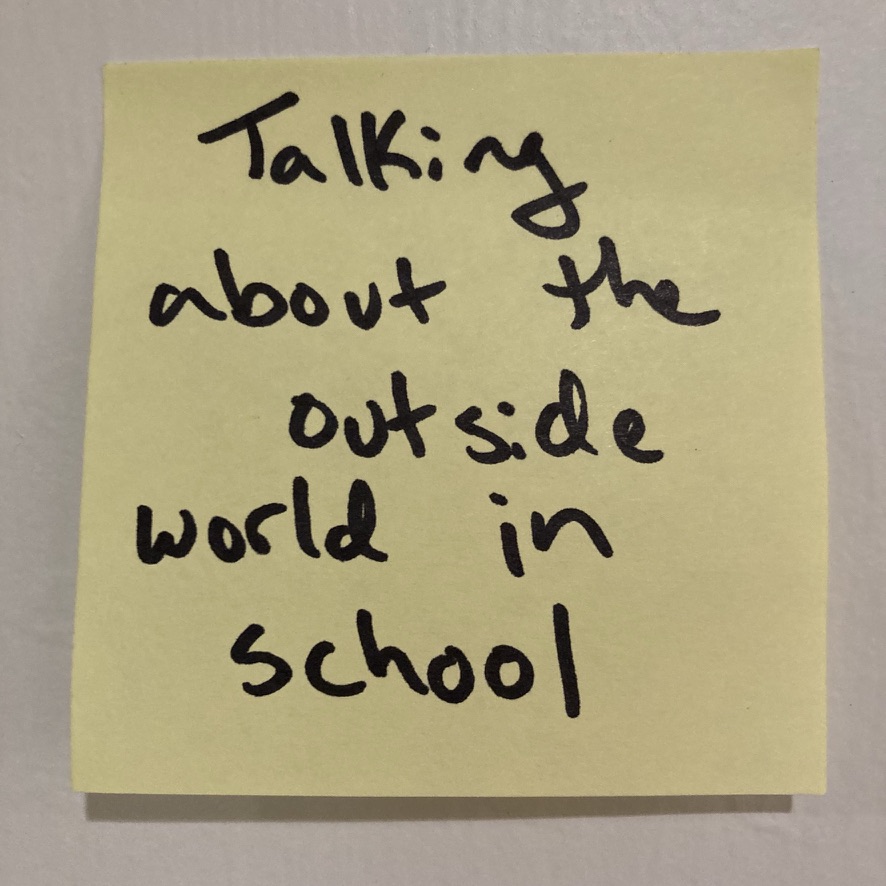 Talking
about the
outside
world in
school